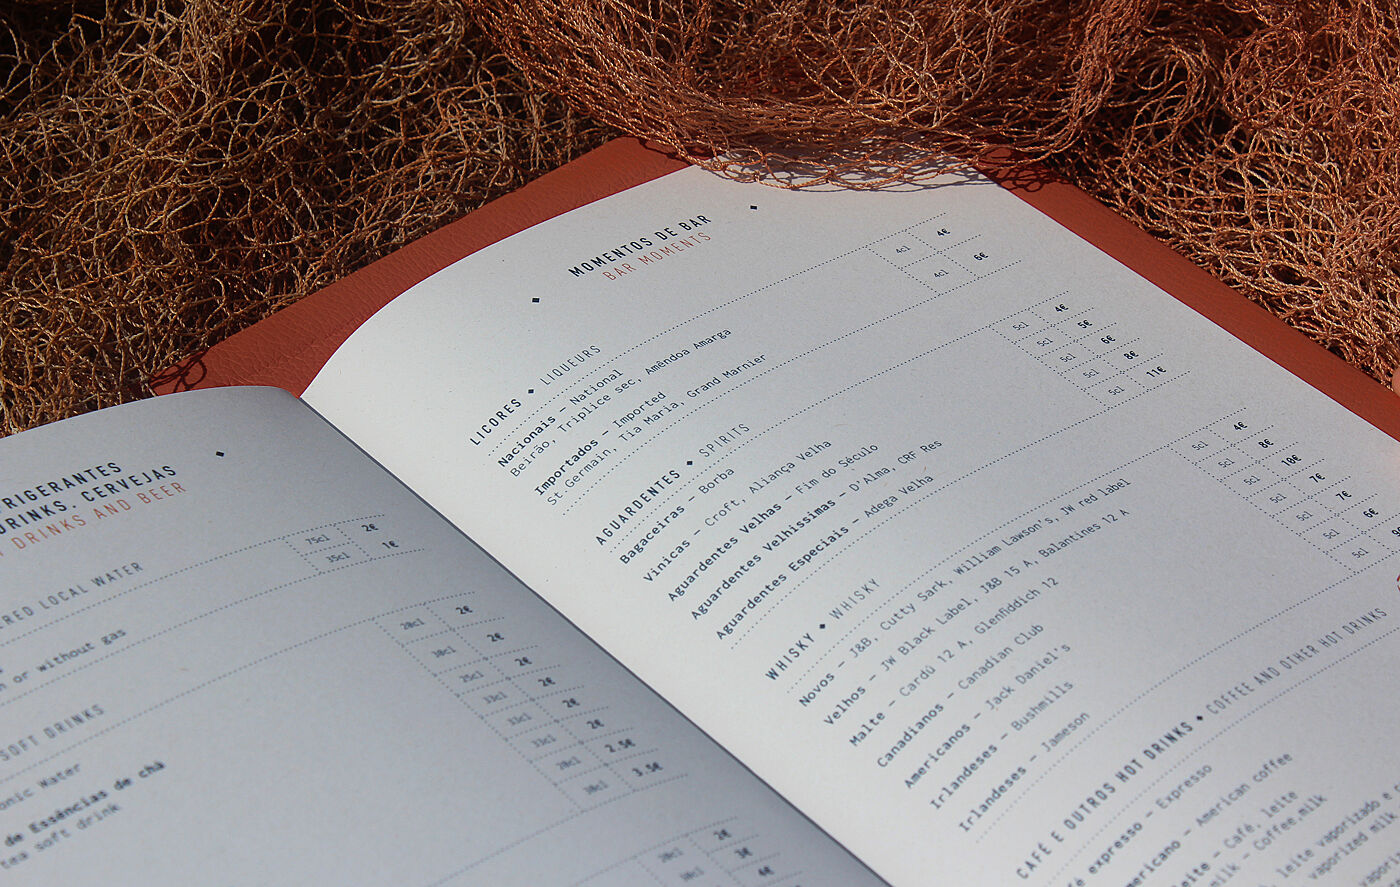 RIGERANTES
DRINKS. CERVEJAS
DRINKS AND BEER
RED LOCAL WATER
75cl 2€
35cl 1€
or without gas
SOFT DRINKS
20cl 2€
30cl 2€
25cl 2€
33cl 2€
33cl 2€
33cl 2€
20cl 2.5€
30cl 3.5€
onic Water
de Essências de chá
tea soft drink
2€
3€
4€
MOMENTOS DE BAR
BAR MOMENTS
LICORES ◆ LIQUEURS
Nacionais – National 4cl 4€
Beirão, Triplice sec, Amêndoa Amarga
Importados – Imported 4cl 6€
St Germain, Tia Maria, Grand Marnier
AGUARDENTES ◆ SPIRITS
Bagaceiras – Borba 5cl 4€
Vinicas – Croft, Aliança Velha 5cl 5€
Aguardentes Velhas – Fim do Século 5cl 6€
Aguardentes Velhissimas – D'Alma, CRF Res 5cl 8€
Aguardentes Especiais – Adega Velha 5cl 11€
WHISKY ◆ WHISKY
Novos – J&B, Cutty Sark, William Lawson's, JW red label 5cl 4€
Velhos – JW Black Label, J&B 15 A, Balantines 12 A 5cl 8€
Malte – Cardú 12 A, Glenfiddich 12 5cl 10€
Canadianos – Canadian Club 5cl 7€
Americanos – Jack Daniel's 5cl 7€
Irlandeses – Bushmills 5cl 6€
Irlandeses – Jameson 5cl
CAFÉ E OUTROS HOT DRINKS ◆ COFFEE AND OTHER HOT DRINKS
fé expresso – Expresso
ericano – American coffee
leite – Café, leite
milk – Coffee.milk
leite vaporizado e
vaporized milk